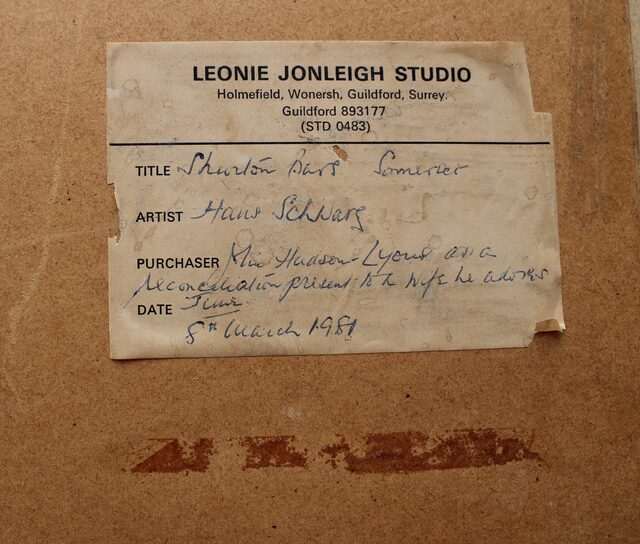 LEONIE JONLEIGH STUDIO
Holmefield, Wonersh, Guildford, Surrey.
Guildford 893177
(STD 0483)
TITLE Shurton Bars Somerset
ARTIST Hans Schwarz
PURCHASER Hudson-Lyons as a
reconciliation present to the wife he adores
DATE
8th March 1981